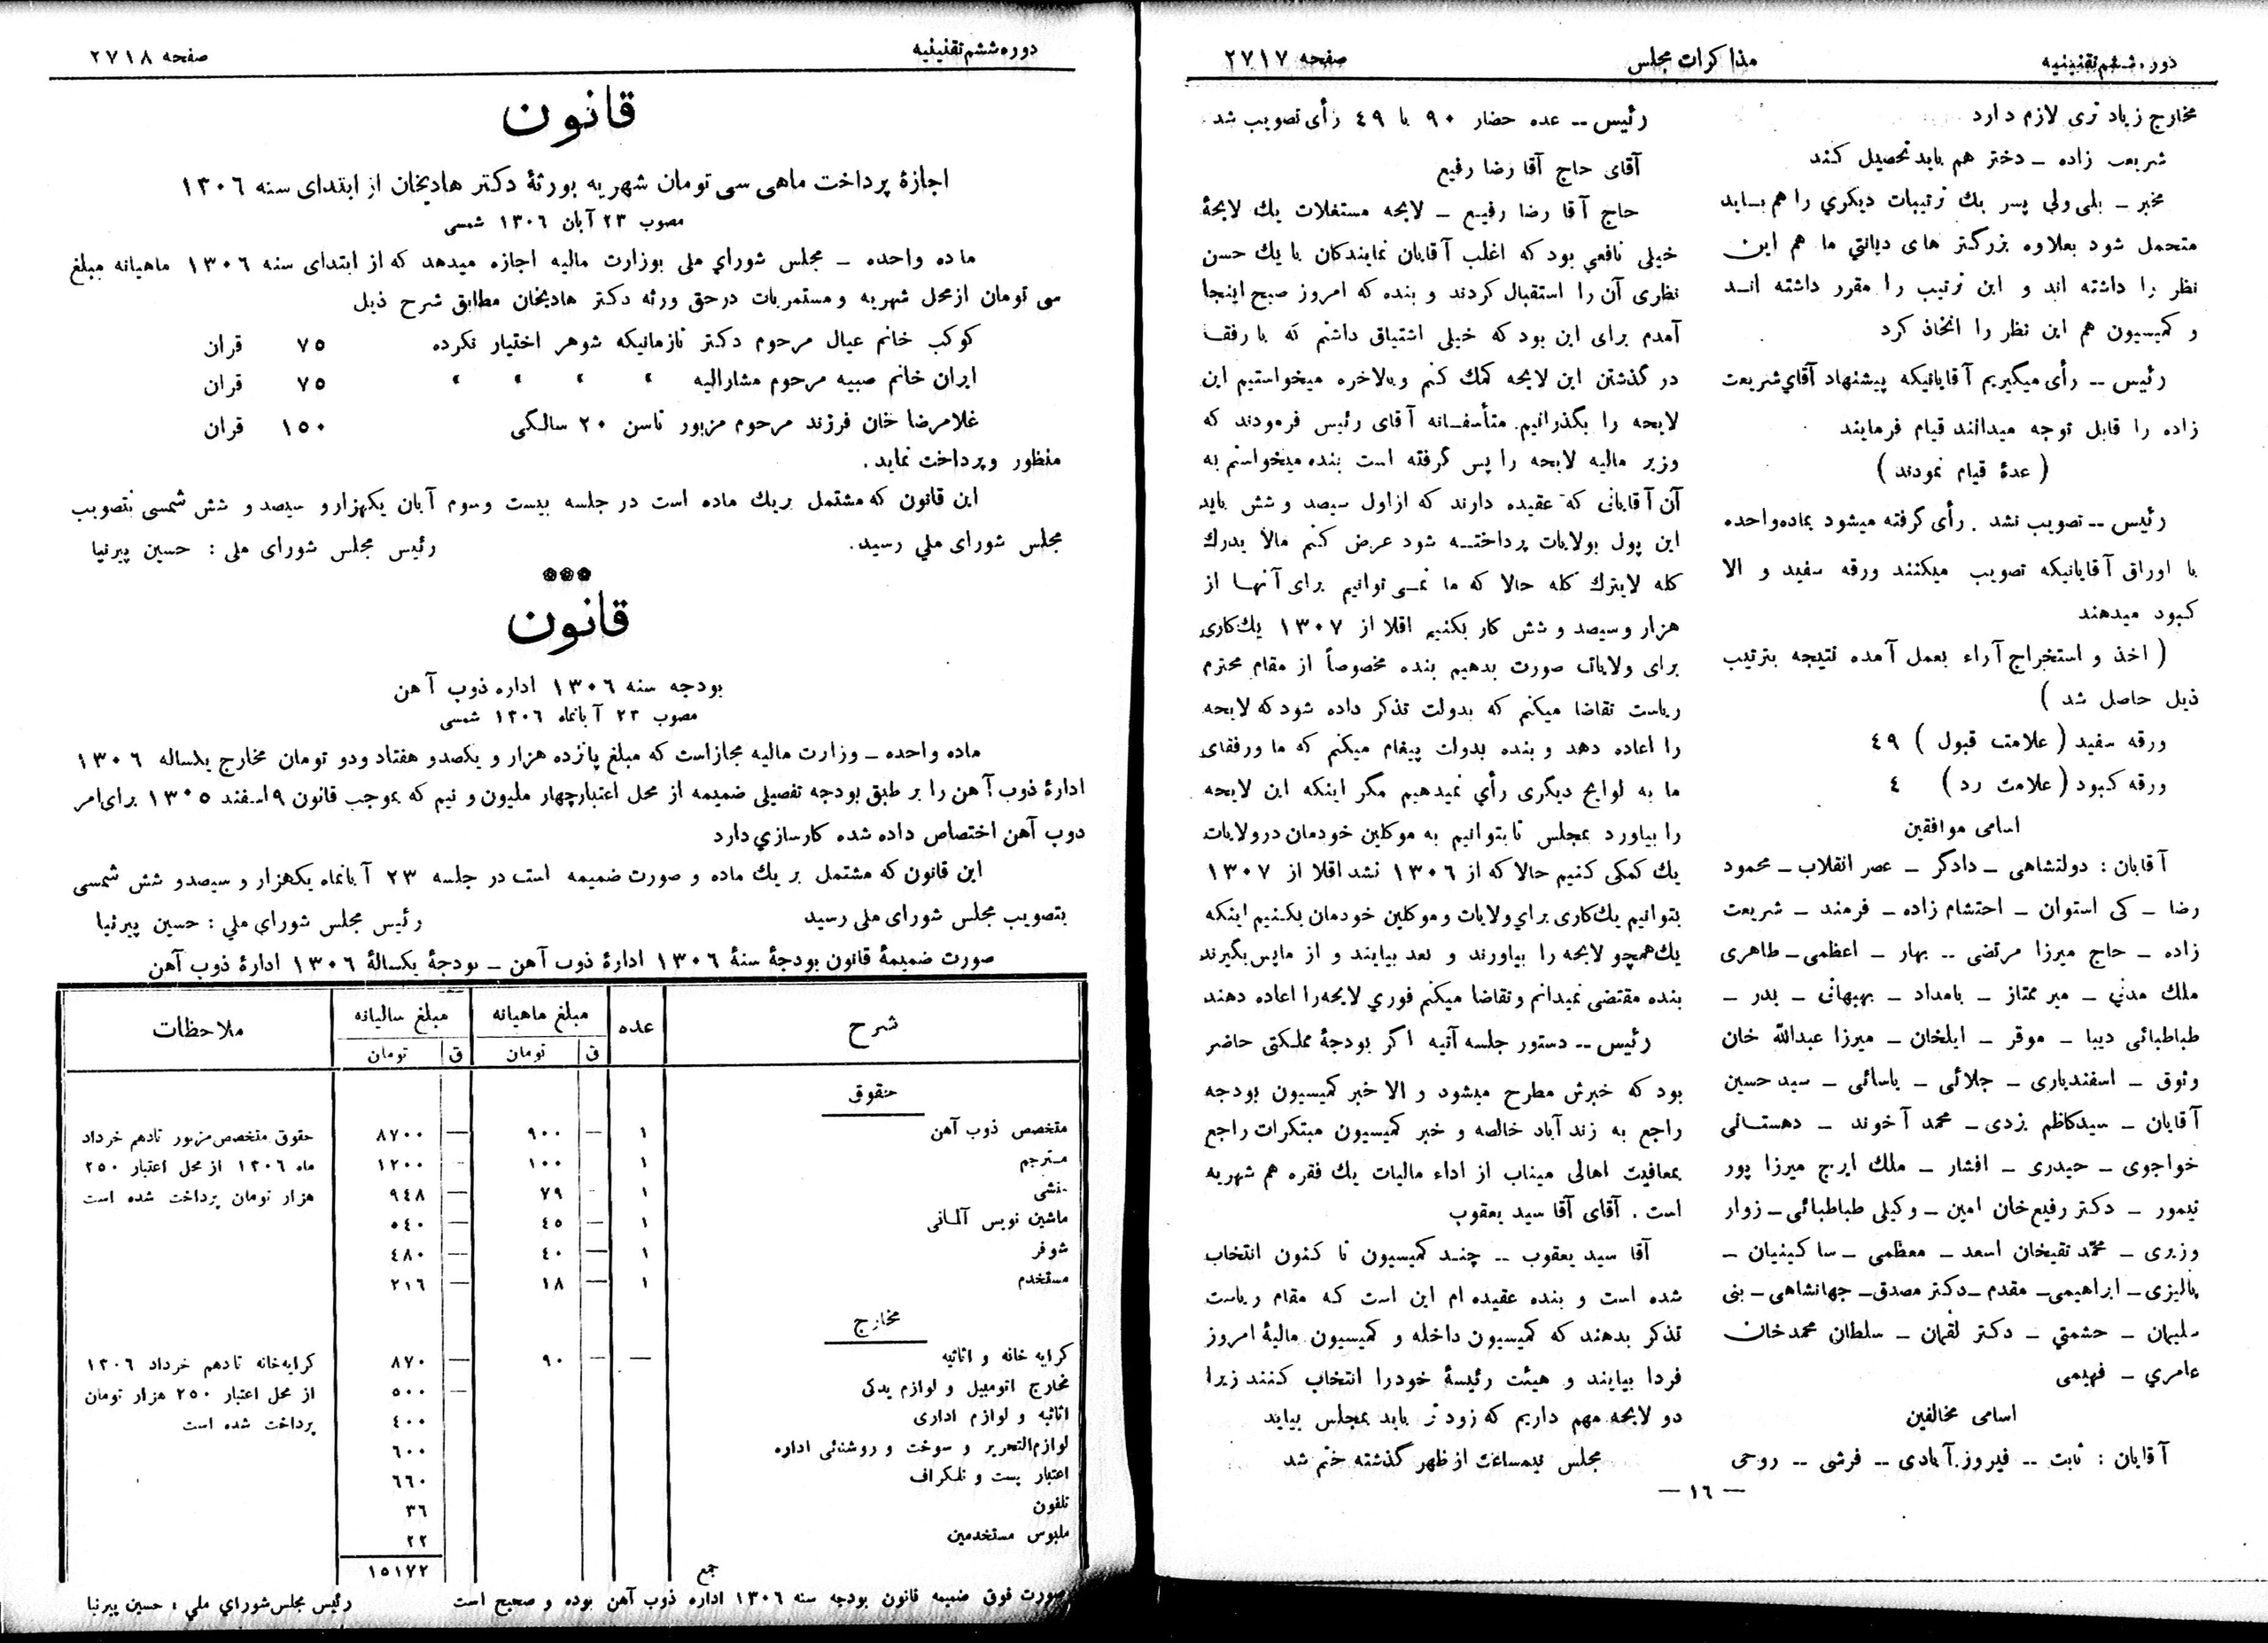 دوره ششم تقنینیه
مذاکرات مجلس
صفحه ۲۷۱۷
مخارج زیادتری لازم دارد
شریعت زاده ـ دختر هم باید تحصیل کند
مخبر ـ بلی ولی پسر یک ترتیبات دیگری را هم باید
متحمل شود بعلاوه بزرگترهای دیانتی ما هم این
نظر را داشته اند و این ترتیب را مقرر داشته اند
و کمیسیون هم این نظر را اتخاذ کرد
رئیس -- رأی میگیریم آقایانیکه پیشنهاد آقای شریعت
زاده را قابل توجه میدانند قیام فرمایند
( عدهٔ قیام نمودند )
رئیس -- تصویب نشد . رأی گرفته میشود بماده واحده
با اوراق آقایانیکه تصویب میکنند ورقه سفید و الا
کبود میدهند
( اخذ و استخراج آراء بعمل آمده نتیجه بترتیب
ذیل حاصل شد )
ورقه سفید ( علامت قبول ) ٤٩
ورقه کبود ( علامت رد ) ٤
اسامی موافقین
آقایان : دولتشاهی ـ دادگر ـ عصر انقلاب ـ محمود
رضا ـ کی استوان ـ احتشام زاده ـ فرمند ـ شریعت
زاده ـ حاج میرزا مرتضی -- بهار ـ اعظمی ـ طاهری
ملک مدنی ـ میر ممتاز ـ بامداد ـ بهبهانی ـ بدر ـ
طباطبائی دیبا ـ موقر ـ ایلخان ـ میرزا عبدالله خان
وثوق ـ اسفندیاری ـ جلائی ـ یاسائی ـ سید حسین
آقایان ـ سید کاظم یزدی ـ محمد آخوند ـ دهستانی
خواجوی ـ حیدری ـ افشار ـ ملک ایرج میرزا پور
تیمور ـ دکتر رفیع خان امین ـ وکیلی طباطبائی ـ زوار
وزیری ـ محمد تقیخان اسعد ـ معظمی ـ ساکینیان ـ
پالیزی ـ ابراهیمی ـ مقدم ـ دکتر مصدق ـ جهانشاهی ـ بنی
سلیمان ـ حشمتی ـ دکتر لقمان ـ سلطان محمدخان
عامری ـ فهیمی
اسامی مخالفین
آقایان : ثابت -- فیروزآبادی -- فرشی -- روحی
رئیس -- عده حضار ۹۰ با ٤٩ رأی تصویب شد
آقای حاج آقا رضا رفیع
حاج آقا رضا رفیع ـ لایحه مستغلات یک لایحهٔ
خیلی نافعی بود که اغلب آقایان نمایندکان با یک حسن
نظری آن را استقبال کردند و بنده که امروز صبح اینجا
آمدم برای این بود که خیلی اشتیاق داشتم که با رفقا
در گذشتن این لایحه کمک کنم و بالاخره میخواستیم این
لایحه را بگذرانیم. متأسفانه آقای رئیس فرمودند که
وزیر مالیه لایحه را پس گرفته است بنده میخواستم به
آن آقایانی که عقیده دارند که از اول سیصد و شش باید
این پول بولایات پرداخته شود عرض کنم مالا یدرک
کله لایترک کله حالا که ما نمی توانیم برای آنها از
هزار و سیصد و شش کار بکنیم اقلا از ۱۳۰۷ یک کاری
برای ولایات صورت بدهیم بنده مخصوصاً از مقام محترم
ریاست تقاضا میکنم که بدولت تذکر داده شود که لایحه
را اعاده دهد و بنده بدولت پیغام میکنم که ما ورفقای
ما به لوایح دیگری رأی نمیدهیم مگر اینکه این لایحه
را بیاورد بمجلس تا بتوانیم به موکلین خودمان در ولایات
یک کمکی کنیم حالا که از ۱۳۰٦ نشد اقلا از ۱۳۰۷
بتوانیم یک کاری برای ولایات و موکلین خودمان بکنیم اینکه
یک همچو لایحه را بیاورند و بعد بیایند و از ماپس بگیرند
بنده مقتضی نمیدانم و تقاضا میکنم فوری لایحه را اعاده دهند
رئیس -- دستور جلسه آتیه اگر بودجهٔ مملکتی حاضر
بود که خبرش مطرح میشود و الا خبر کمیسیون بودجه
راجع به زندآباد خالصه و خبر کمیسیون مبتکرات راجع
بمعافیت اهالی میناب از اداء مالیات یک فقره هم شهریه
است . آقای آقا سید یعقوب
آقا سید یعقوب -- چند کمیسیون تا کنون انتخاب
شده است و بنده عقیده ام این است که مقام ریاست
تذکر بدهند که کمیسیون داخله و کمیسیون مالیهٔ امروز
فردا بیایند و هیئت رئیسهٔ خود را انتخاب کنند زیرا
دو لایحه مهم داریم که زودتر باید بمجلس بیاید
مجلس نیمساعت از ظهر گذشته ختم شد
— ۱٦ —
دوره ششم تقنینیه
صفحه ۲۷۱۸
قانون
اجازهٔ پرداخت ماهی سی تومان شهریه بورثهٔ دکتر هادیخان از ابتدای سنه ۱۳۰٦
مصوب ۲۳ آبان ۱۳۰٦ شمسی
ماده واحده ـ مجلس شورای ملی بوزارت مالیه اجازه میدهد که از ابتدای سنه ۱۳۰٦ ماهیانه مبلغ
سی تومان از محل شهریه و مستمریات در حق ورثه دکتر هادیخان مطابق شرح ذیل
کوکب خانم عیال مرحوم دکتر تازمانیکه شوهر اختیار نکرده ۷٥ قران
ایران خانم صبیه مرحوم مشارالیه ، ، ، ، ۷٥ قران
غلامرضا خان فرزند مرحوم مزبور تاسن ۲۰ سالگی ۱٥۰ قران
منظور و پرداخت نماید .
این قانون که مشتمل بریک ماده است در جلسه بیست وسوم آبان یکهزارو سیصد و شش شمسی بتصویب
مجلس شورای ملی رسید. رئیس مجلس شورای ملی : حسین پیرنیا
قانون
بودجه سنه ۱۳۰٦ اداره ذوب آهن
مصوب ۲۳ آبانماه ۱۳۰٦ شمسی
ماده واحده ـ وزارت مالیه مجازاست که مبلغ پانزده هزار و یکصدو هفتاد ودو تومان مخارج یکساله ۱۳۰٦
ادارهٔ ذوب آهن را بر طبق بودجه تفصیلی ضمیمه از محل اعتبارچهار ملیون و نیم که بموجب قانون ۹ اسفند ۱۳۰٥ برای امر
ذوب آهن اختصاص داده شده کارسازی دارد
این قانون که مشتمل بر یک ماده و صورت ضمیمه است در جلسه ۲۳ آبانماه یکهزار و سیصدو شش شمسی
بتصویب مجلس شورای ملی رسید رئیس مجلس شورای ملی : حسین پیرنیا
صورت ضمیمهٔ قانون بودجهٔ سنهٔ ۱۳۰٦ ادارهٔ ذوب آهن ـ بودجهٔ یکسالهٔ ۱۳۰٦ ادارهٔ ذوب آهن
شرح عده مبلغ ماهیانه مبلغ سالیانه ملاحظات
ق تومان ق تومان
حقوق
متخصص ذوب آهن ۱ — ۹۰۰ — ۸۷۰۰ حقوق متخصص مزبور تادهم خرداد
مترجم ۱ — ۱۰۰ — ۱۲۰۰ ماه ۱۳۰٦ از محل اعتبار ۲٥۰
منشی ۱ — ۷۹ — ۹٤۸ هزار تومان پرداخت شده است
ماشین نویس آلمانی ۱ — ٤٥ — ٥٤۰
شوفر ۱ — ٤۰ — ٤۸۰
مستخدم ۱ — ۱۸ — ۲۱٦
مخارج
کرایه خانه و اثاثیه — — ۹۰ — ۸۷۰ کرایه خانه تادهم خرداد ۱۳۰٦
مخارج اتومبیل و لوازم یدکی — ٥۰۰ از محل اعتبار ۲٥۰ هزار تومان
اثاثیه و لوازم اداری ٤۰۰ پرداخت شده است
لوازم التحریر و سوخت و روشنائی اداره ٦۰۰
اعتبار پست و تلگراف ٦٦۰
تلفون ۳٦
ملبوس مستخدمین ۲۲
جمع ۱٥۱۷۲
صورت فوق ضمیمه قانون بودجه سنه ۱۳۰٦ اداره ذوب آهن بوده و صحیح است رئیس مجلس شورای ملی : حسین پیرنیا